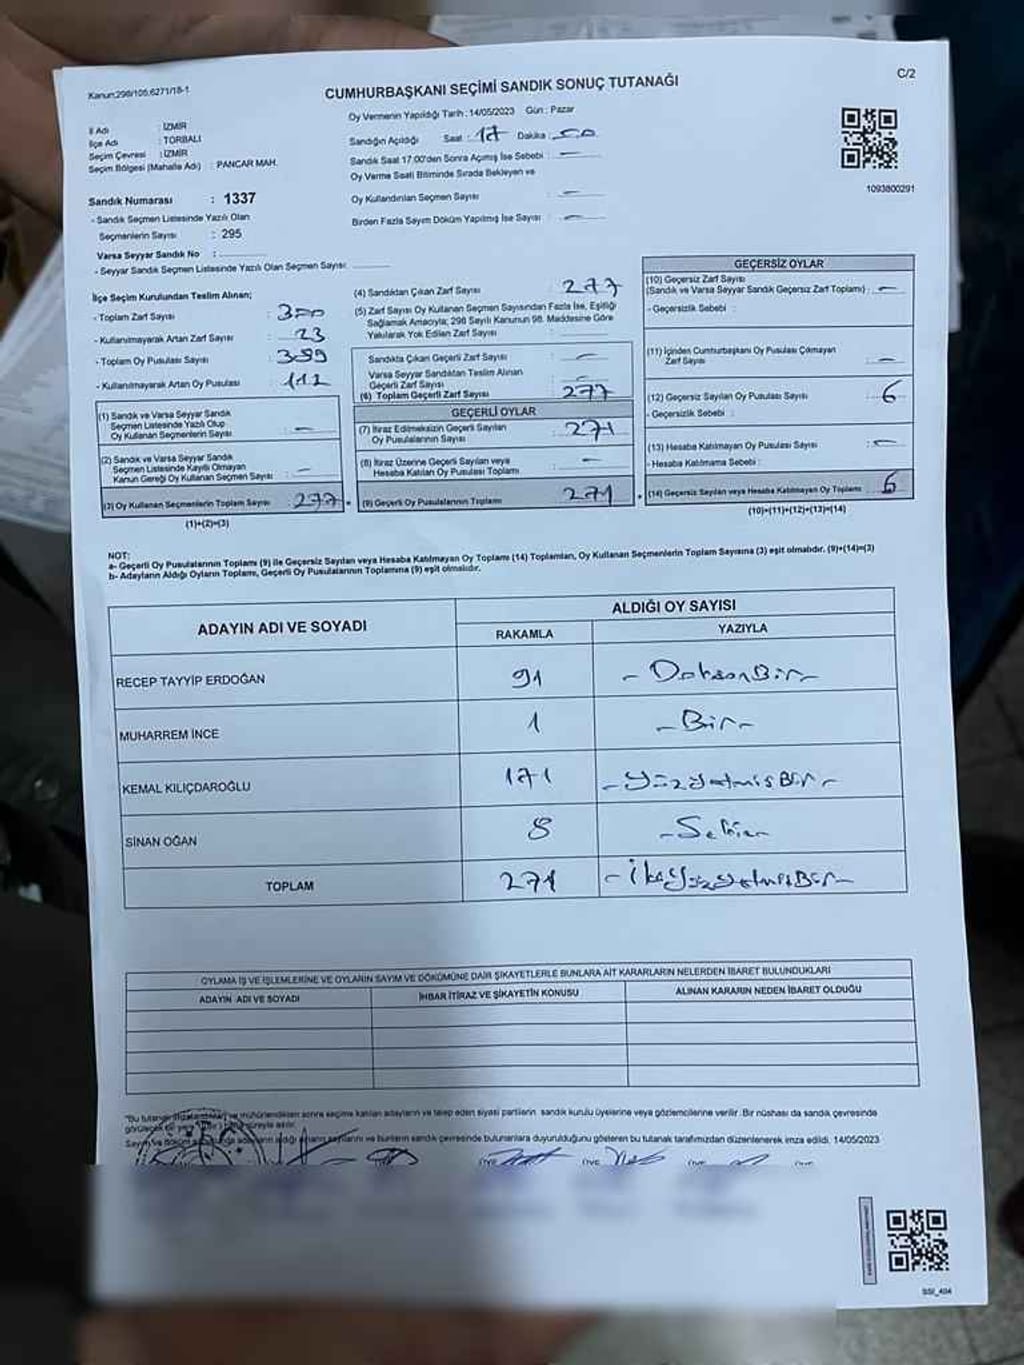 C/2
Kanun:298/105,6271/18-1
CUMHURBAŞKANI SEÇİMİ SANDIK SONUÇ TUTANAĞI
İl Adı : İZMİR
İlçe Adı : TORBALI
Seçim Çevresi : İZMİR
Seçim Bölgesi (Mahalle Adı) : PANCAR MAH.
Sandık Numarası : 1337
- Sandık Seçmen Listesinde Yazılı Olan
Seçmenlerin Sayısı : 295
Varsa Seyyar Sandık No :
- Seyyar Sandık Seçmen Listesinde Yazılı Olan Seçmen Sayısı:
Oy Vermenin Yapıldığı Tarih : 14/05/2023 Gün : Pazar
Sandığın Açıldığı Saat : 17 Dakika : 50
Sandık Saat 17:00'den Sonra Açımış İse Sebebi : —
Oy Verme Saati Bitiminde Sırada Bekleyen ve
Oy Kullandırılan Seçmen Sayısı : —
Birden Fazla Sayım Döküm Yapılmış İse Sayısı : —
1093800291
İlçe Seçim Kurulundan Teslim Alınan;
- Toplam Zarf Sayısı : 300
- Kullanılmayarak Artan Zarf Sayısı : 23
- Toplam Oy Pusulası Sayısı : 399
- Kullanılmayarak Artan Oy Pusulası : 112
(1) Sandık ve Varsa Seyyar Sandık
Seçmen Listesinde Yazılı Olup
Oy Kullanan Seçmenlerin Sayısı : —
(2) Sandık ve Varsa Seyyar Sandık
Seçmen Listesinde Kayıtlı Olmayan
Kanun Gereği Oy Kullanan Seçmen Sayısı : —
(3) Oy Kullanan Seçmenlerin Toplam Sayısı : 277
(1)+(2)=(3)
(4) Sandıktan Çıkan Zarf Sayısı : 277
(5) Zarf Sayısı Oy Kullanan Seçmen Sayısından Fazla İse, Eşitliği
Sağlamak Amacıyla; 298 Sayılı Kanunun 98. Maddesine Göre
Yakılarak Yok Edilen Zarf Sayısı :
Sandıkta Çıkan Geçerli Zarf Sayısı : —
Varsa Seyyar Sandıktan Teslim Alınan
Geçerli Zarf Sayısı : —
(6) Toplam Geçerli Zarf Sayısı : 277
GEÇERLİ OYLAR
(7) İtiraz Edilmeksizin Geçerli Sayılan
Oy Pusulalarının Sayısı : 271
(8) İtiraz Üzerine Geçerli Sayılan veya
Hesaba Katılan Oy Pusulası Toplamı : —
(9) Geçerli Oy Pusulalarının Toplamı : 271
GEÇERSİZ OYLAR
(10) Geçersiz Zarf Sayısı
(Sandık ve Varsa Seyyar Sandık Geçersiz Zarf Toplamı) : —
- Geçersizlik Sebebi :
(11) İçinden Cumhurbaşkanı Oy Pusulası Çıkmayan
Zarf Sayısı : —
(12) Geçersiz Sayılan Oy Pusulası Sayısı : 6
- Geçersizlik Sebebi :
(13) Hesaba Katılmayan Oy Pusulası Sayısı : —
- Hesaba Katılmama Sebebi :
(14) Geçersiz Sayılan veya Hesaba Katılmayan Oy Toplamı : 6
(10)+(11)+(12)+(13)=(14)
NOT:
a- Geçerli Oy Pusulalarının Toplamı (9) ile Geçersiz Sayılan veya Hesaba Katılmayan Oy Toplamı (14) Toplamları, Oy Kullanan Seçmenlerin Toplam Sayısına (3) eşit olmalıdır. (9)+(14)=(3)
b- Adayların Aldığı Oyların Toplamı, Geçerli Oy Pusulalarının Toplamına (9) eşit olmalıdır.
ADAYIN ADI VE SOYADI
ALDIĞI OY SAYISI
RAKAMLA YAZIYLA
RECEP TAYYİP ERDOĞAN 91 - DoksanBir -
MUHARREM İNCE 1 - Bir -
KEMAL KILIÇDAROĞLU 171 - YüzYetmişBir -
SİNAN OĞAN 8 - Sekiz -
TOPLAM 271 - İkiYüzYetmişBir -
OYLAMA İŞ VE İŞLEMLERİNE VE OYLARIN SAYIM VE DÖKÜMÜNE DAİR ŞİKAYETLERLE BUNLARA AİT KARARLARIN NELERDEN İBARET BULUNDUKLARI
ADAYIN ADI VE SOYADI İHBAR İTİRAZ VE ŞİKAYETİN KONUSU ALINAN KARARIN NEDEN İBARET OLDUĞU
"Bu tutanak ve mühürlendikten sonra seçime katılan adayların ve talep eden siyasi partilerin sandık kurulu üyelerine veya gözlemcilerine verilir. Bir nüshası da sandık çevresinde
görülecek bir yere süreyle asılır.
Sayım ve döküm adayların aldığı oyların sayılarını ve bunların sandık çevresinde bulunanlara duyurulduğunu gösteren bu tutanak tarafımızdan düzenlenerek imza edildi. 14/05/2023
SSI_404